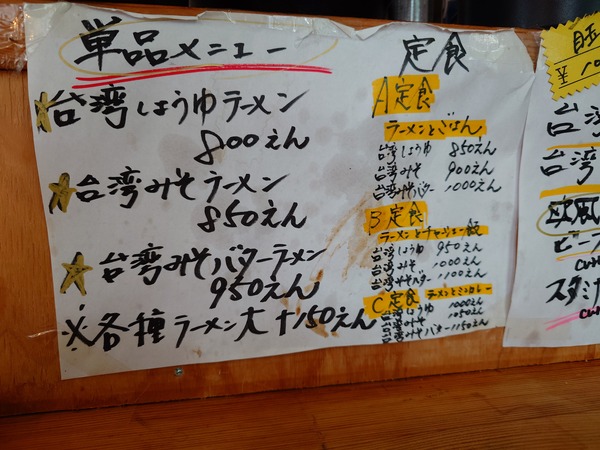 単品メニュー
台湾しょうゆラーメン
800えん
台湾みそラーメン
850えん
台湾みそバターラーメン
950えん
※各種ラーメン大+150えん
定食
A定食
ラーメンとごはん
台湾しょうゆ 850えん
台湾みそ 900えん
台湾みそバター 1000えん
B定食
ラーメンとチャーシュー飯
台湾しょうゆ 950えん
台湾みそ 1000えん
台湾みそバター 1100えん
C定食 ラーメンとミニカレー
台湾しょうゆ 1000えん
台湾みそ 1050えん
台湾みそバター 1150えん
台湾
台湾
欧風
ビー
スタミナ